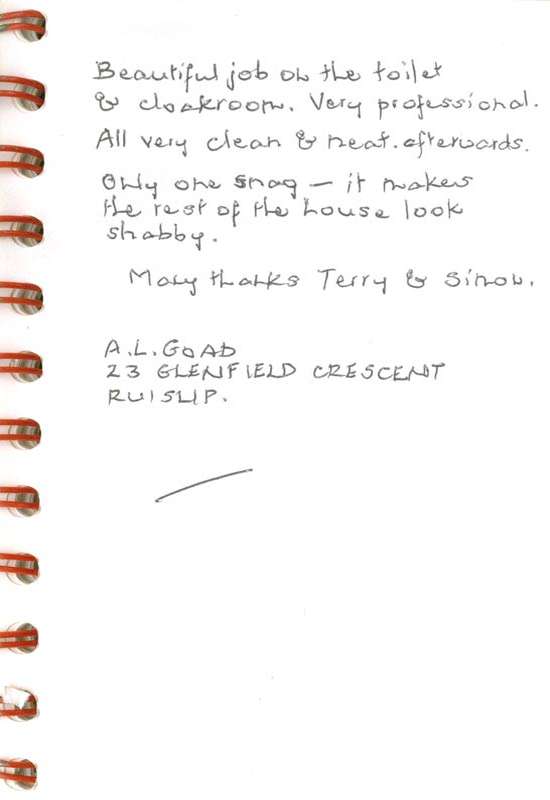 Beautiful job on the toilet
& cloakroom. Very professional.
All very clean & neat. afterwards.
Only one snag – it makes
the rest of the house look
shabby.
Many thanks Terry & Simon.
A.L. GOAD
23 GLENFIELD CRESCENT
RUISLIP.